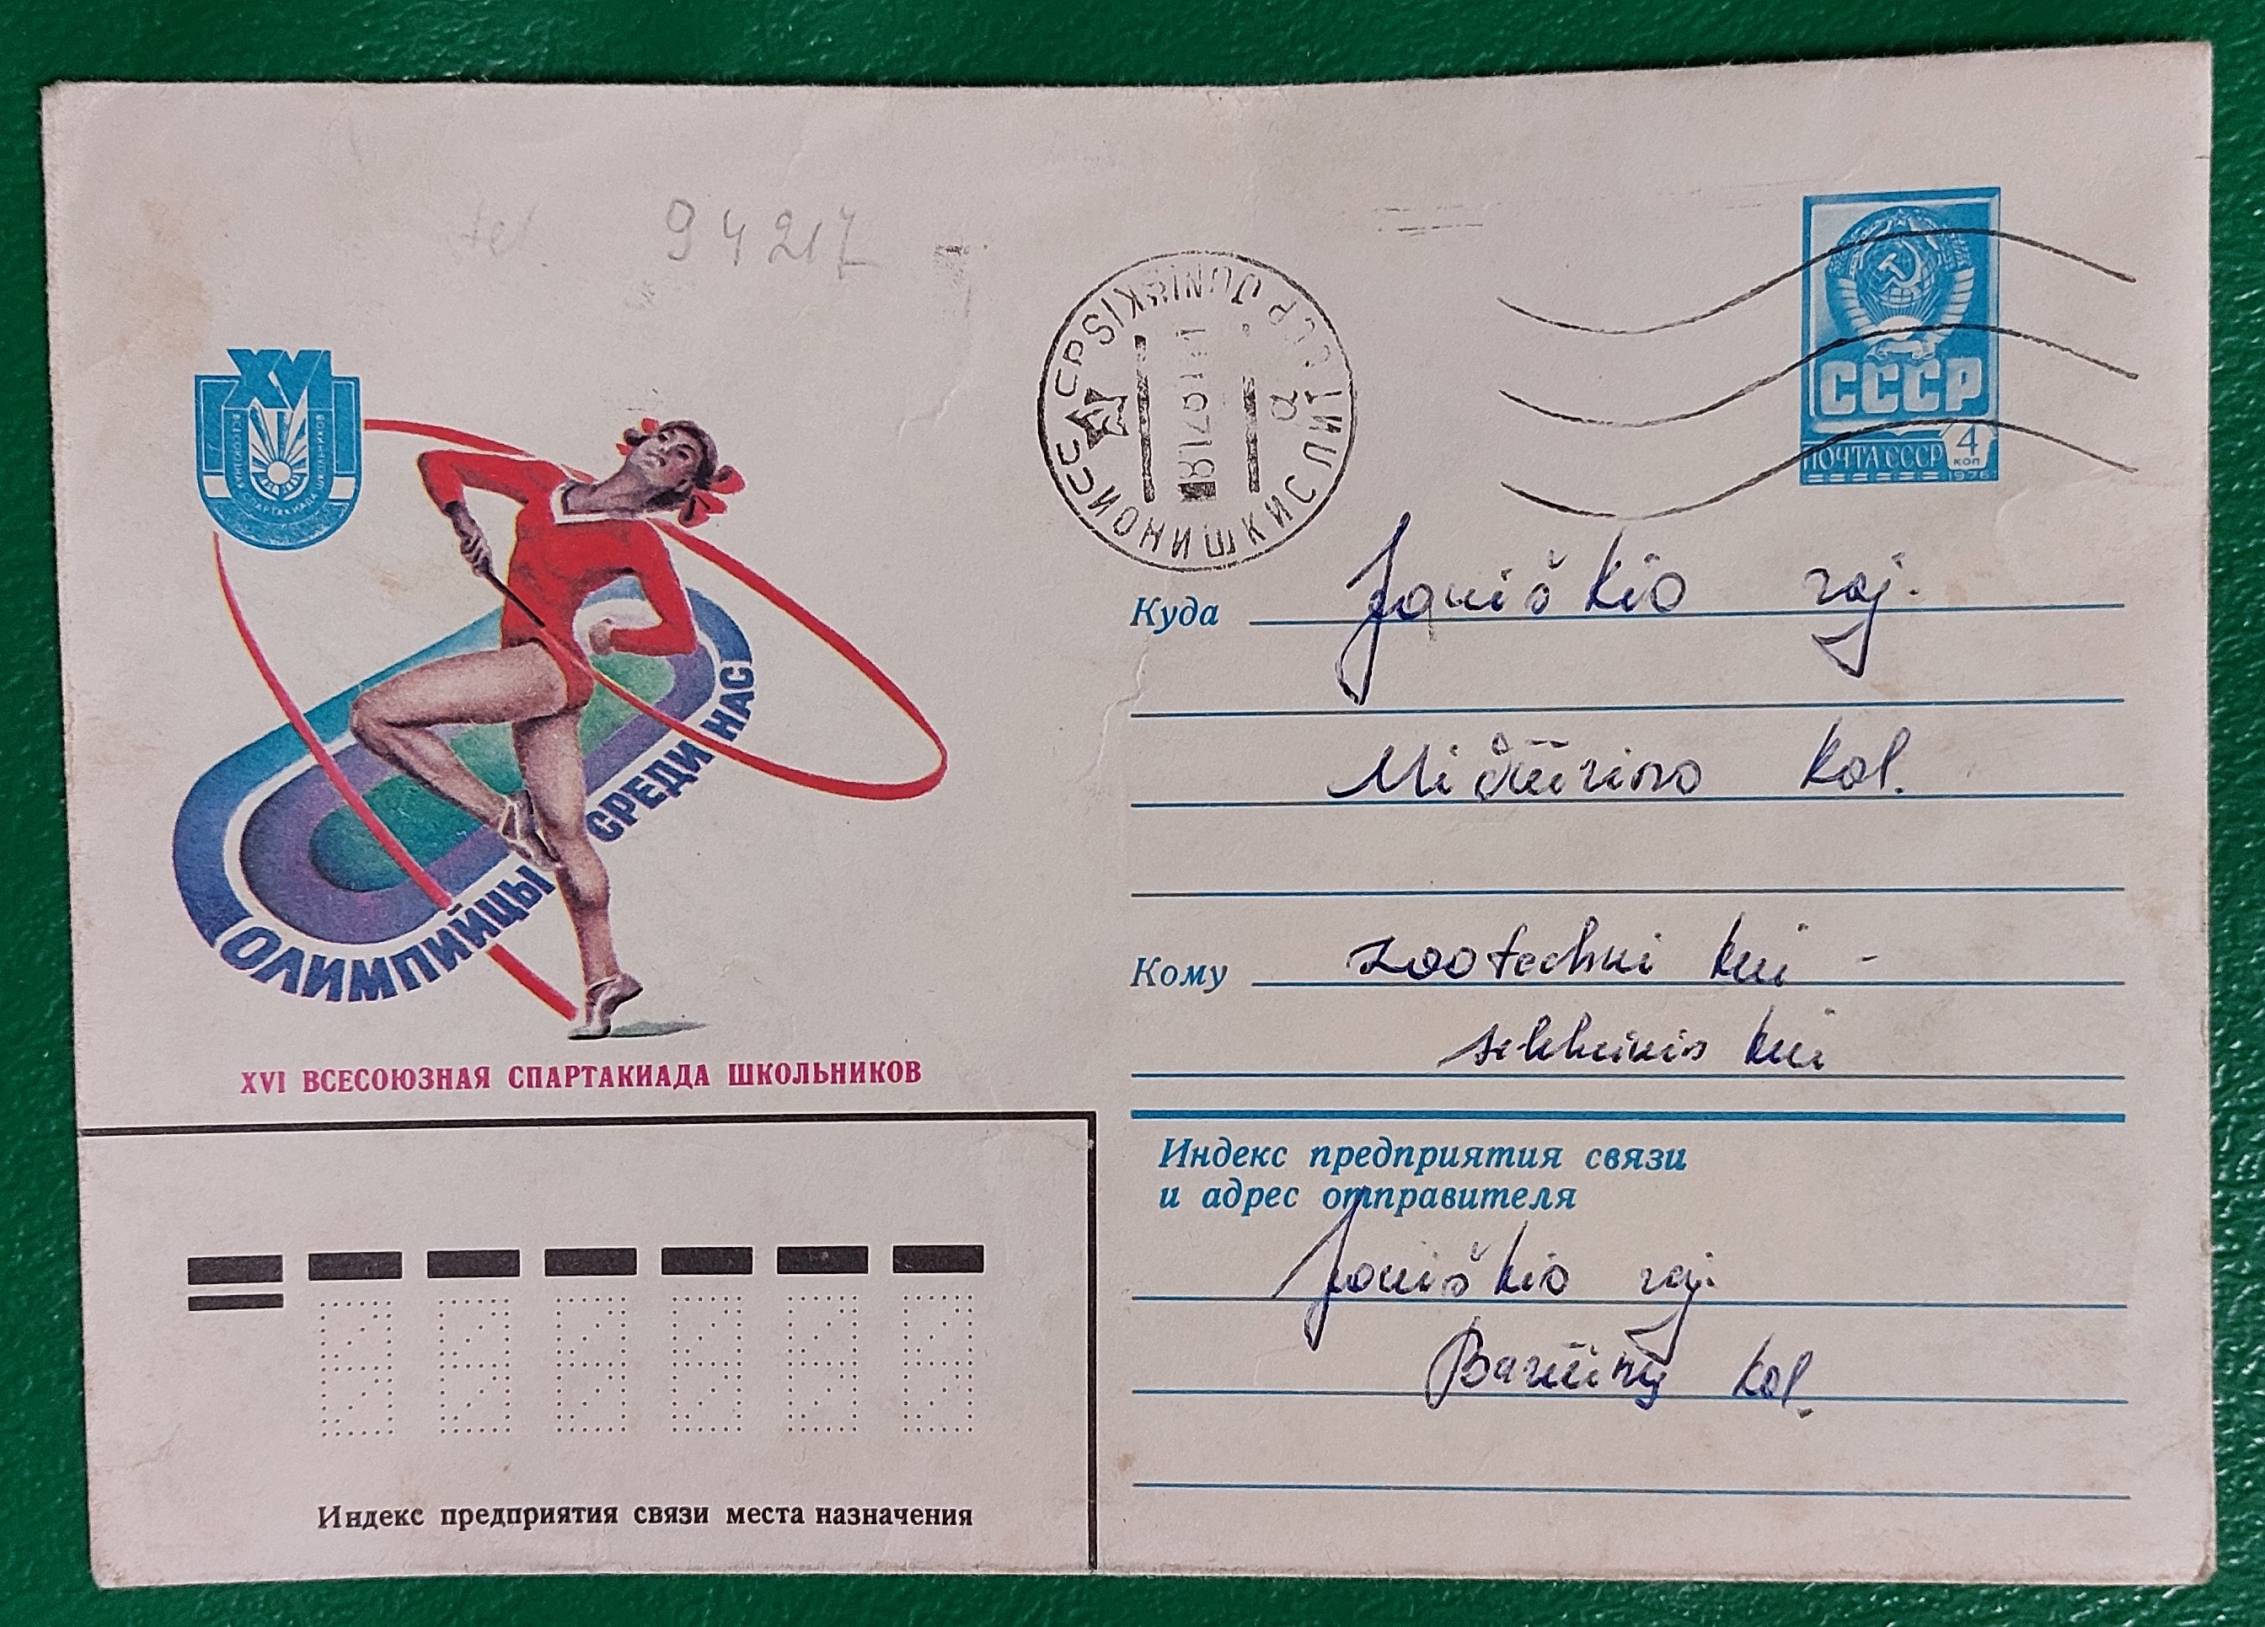 tel. 94217
XVI
ВСЕСОЮЗНАЯ СПАРТАКИАДА ШКОЛЬНИКОВ
ОЛИМПИЙЦЫ СРЕДИ НАС
XVI ВСЕСОЮЗНАЯ СПАРТАКИАДА ШКОЛЬНИКОВ
СССР
ПОЧТА СССР 4 коп
1976
JONIŠKIS
ИОНИШКИС ЛИТ
Куда Joniškio raj.
Mičiūrino kol.
Кому zootechnikui -
selekcininkui
Индекс предприятия связи
и адрес отправителя
Joniškio raj.
Bariūnų kol.
Индекс предприятия связи места назначения